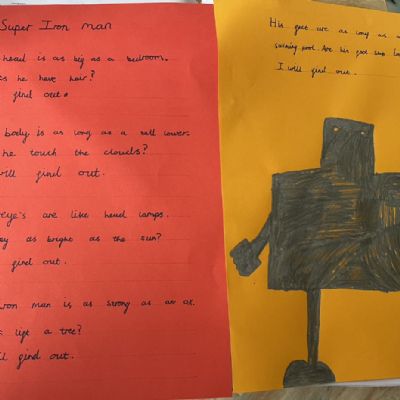 Super Iron man
head is as big as a bedroom.
he have hair?
find out.
body is as long as a
he touch the clouds?
will find out.
eye's are like head lamps.
as bright as the sun?
find out.
Iron man is as strong as an
lift a tree?
find out.
His feet are as long as
swimming pool. Are his feet
I will find out.